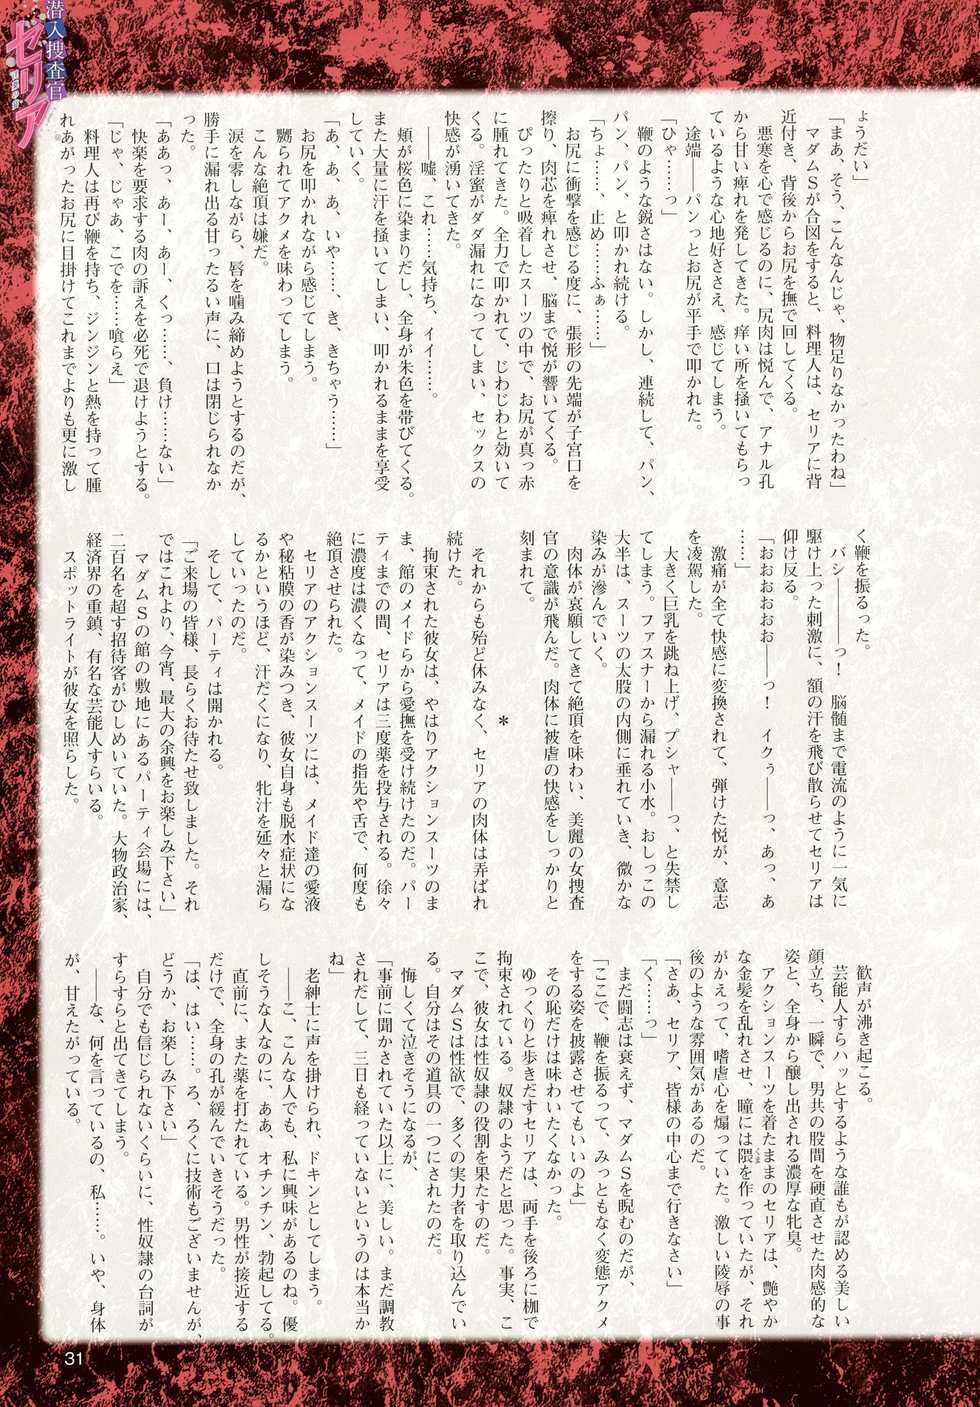 潜入捜査官
ゼリア
ょうだい」
「まあ、そう、こんなんじゃ、物足りなかったわね」
マダムSが合図をすると、料理人は、セリアに背
近付き、背後からお尻を撫で回してくる。
悪寒を心で感じるのに、尻肉は悦んで、アナル孔
から甘い痺れを発してきた。痒い所を掻いてもらっ
ているような心地好ささえ、感じてしまう。
途端――パンっとお尻が平手で叩かれた。
「ひゃ……っ」
鞭のような鋭さはない。しかし、連続して、パン、
パン、パン、と叩かれ続ける。
「ちょ……、止め……ふぁ……」
お尻に衝撃を感じる度に、張形の先端が子宮口を
擦り、肉芯を痺れさせ、脳まで悦が響いてくる。
ぴったりと吸着したスーツの中で、お尻が真っ赤
に腫れてきた。全力で叩かれて、じわじわと効いて
くる。淫蜜がダダ漏れになってしまい、セックスの
快感が湧いてきた。
――嘘、これ……気持ち、イイ……。
頬が桜色に染まりだし、全身が朱色を帯びてくる。
また大量に汗を掻いてしまい、叩かれるままを享受
していく。
「あ、あ、あ、いや……、き、きちゃう……」
お尻を叩かれながら感じてしまう。
嬲られてアクメを味わってしまう。
こんな絶頂は嫌だ。
涙を零しながら、唇を噛み締めようとするのだが、
勝手に漏れ出る甘ったるい声に、口は閉じられなか
った。
「ああっ、あー、あー、くっ……、負け……ない」
快楽を要求する肉の訴えを必死で退けようとする。
「じゃ、じゃあ、こでを……喰らえ」
料理人は再び鞭を持ち、ジンジンと熱を持って腫
れあがったお尻に目掛けてこれまでよりも更に激し
く鞭を振るった。
バシ――――っ！　脳髄まで電流のように一気に
駆け上った刺激に、額の汗を飛び散らせてセリアは
仰け反る。
「おおおおおお――っ！　イクぅ――っ、あっ、あ
……」
激痛が全て快感に変換されて、弾けた悦が、意志
を凌駕した。
大きく巨乳を跳ね上げ、プシャ――っ、と失禁し
てしまう。ファスナーから漏れる小水。おしっこの
大半は、スーツの太股の内側に垂れていき、微かな
染みが滲んでいく。
肉体が哀願してきて絶頂を味わい、美麗の女捜査
官の意識が飛んだ。肉体に被虐の快感をしっかりと
刻まれて。
＊
それからも殆ど休みなく、セリアの肉体は弄ばれ
続けた。
拘束された彼女は、やはりアクションスーツのま
ま、館のメイドらから愛撫を受け続けたのだ。パー
ティまでの間、セリアは三度薬を投与される。徐々
に濃度は濃くなって、メイドの指先や舌で、何度も
絶頂させられた。
セリアのアクションスーツには、メイド達の愛液
や秘粘膜の香が染みつき、彼女自身も脱水症状にな
るかというほど、汗だくになり、牝汁を延々と漏ら
していったのだ。
そして、パーティは開かれる。
「ご来場の皆様、長らくお待たせ致しました。それ
ではこれより、今宵、最大の余興をお楽しみ下さい」
マダムSの館の敷地にあるパーティ会場には、
二百名を超す招待客がひしめいていた。大物政治家、
経済界の重鎮、有名な芸能人すらいる。
スポットライトが彼女を照らした。
歓声が沸き起こる。
芸能人すらハッとするような誰もが認める美しい
顔立ち、一瞬で、男共の股間を硬直させた肉感的な
姿と、全身から醸し出される濃厚な牝臭。
アクションスーツを着たままのセリアは、艶やか
な金髪を乱れさせ、瞳には隈くまを作っていたが、それ
がかえって、嗜虐心を煽っていた。激しい陵辱の事
後のような雰囲気があるのだ。
「さあ、セリア、皆様の中心まで行きなさい」
「く……っ」
まだ闘志は衰えず、マダムSを睨むのだが、
「ここで、鞭を振るって、みっともなく変態アクメ
をする姿を披露させてもいいのよ」
その恥だけは味わいたくなかった。
ゆっくりと歩きだすセリアは、両手を後ろに枷で
拘束されている。奴隷のようだと思った。事実、こ
こで、彼女は性奴隷の役割を果たすのだ。
マダムSは性欲で、多くの実力者を取り込んでい
る。自分はその道具の一つにされたのだ。
悔しくて泣きそうになるが、
「事前に聞かされていた以上に、美しい。まだ調教
されだして、三日も経っていないというのは本当か
ね」
老紳士に声を掛けられ、ドキンとしてしまう。
――こ、こんな人でも、私に興味があるのね。優
しそうな人なのに、ああ、オチンチン、勃起してる。
直前に、また薬を打たれている。男性が接近する
だけで、全身の孔が緩んでいきそうだった。
「は、はい……。ろ、ろくに技術もございませんが、
どうか、お楽しみ下さい」
自分でも信じられないくらいに、性奴隷の台詞が
すらすらと出てきてしまう。
――な、何を言っているの、私……。いや、身体
が、甘えたがっている。
31